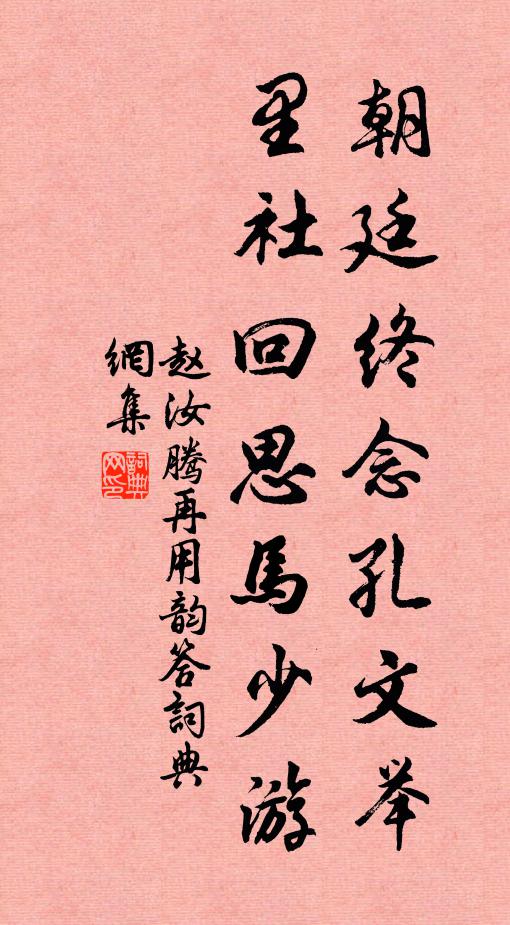 朝廷终念孔文举
里社回思馬少游
赵汝腾再用韵答詞典
網集
詞典
网印